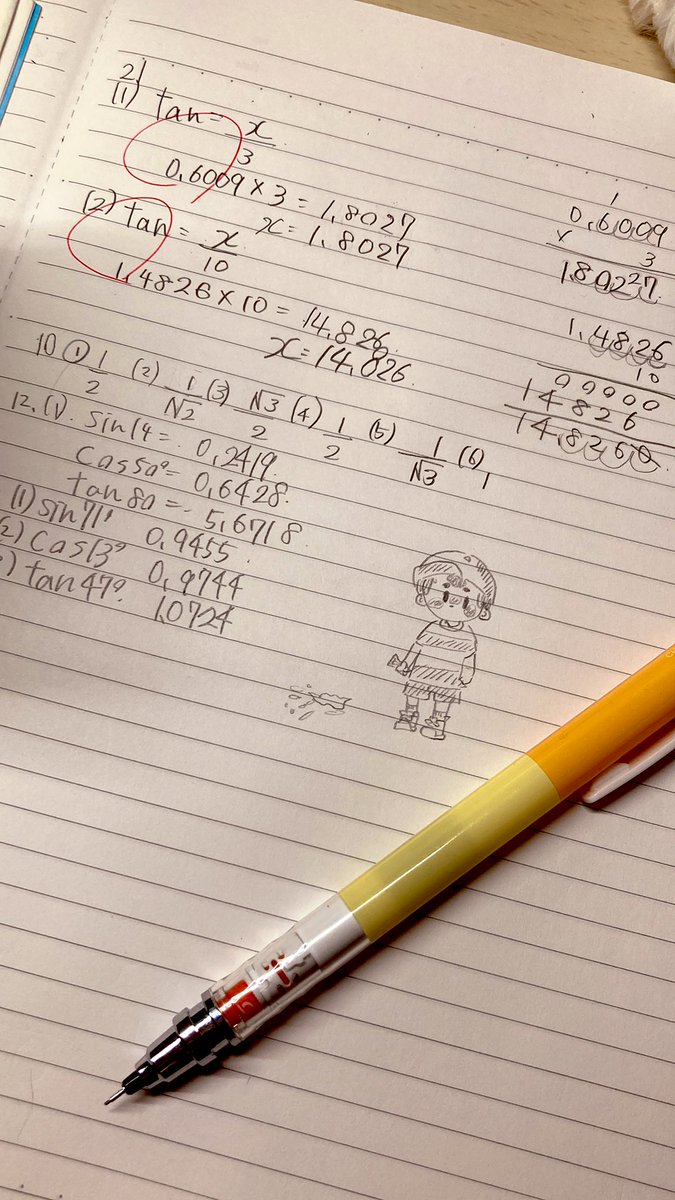 21
(1) tan = x/3
0.6009 × 3 = 1.8027
x = 1.8027
(2) tan = x/10
1.4826 × 10 = 14.826
x = 14.826.
10 ① 1/2 (2) 1/√2 (3) √3/2 (4) 1/2 (5) 1/√3 (6) 1
12. (1). sin14 = 0,2419
cos50° = 0,6428.
tan80 = 5,6718.
(1) sin71° 0.9455.
(2) cos13° 0,9744
) tan47° 1.0724
1
0.6009
× 3
1.80227
1.4826
10
00000
14826
14.8260